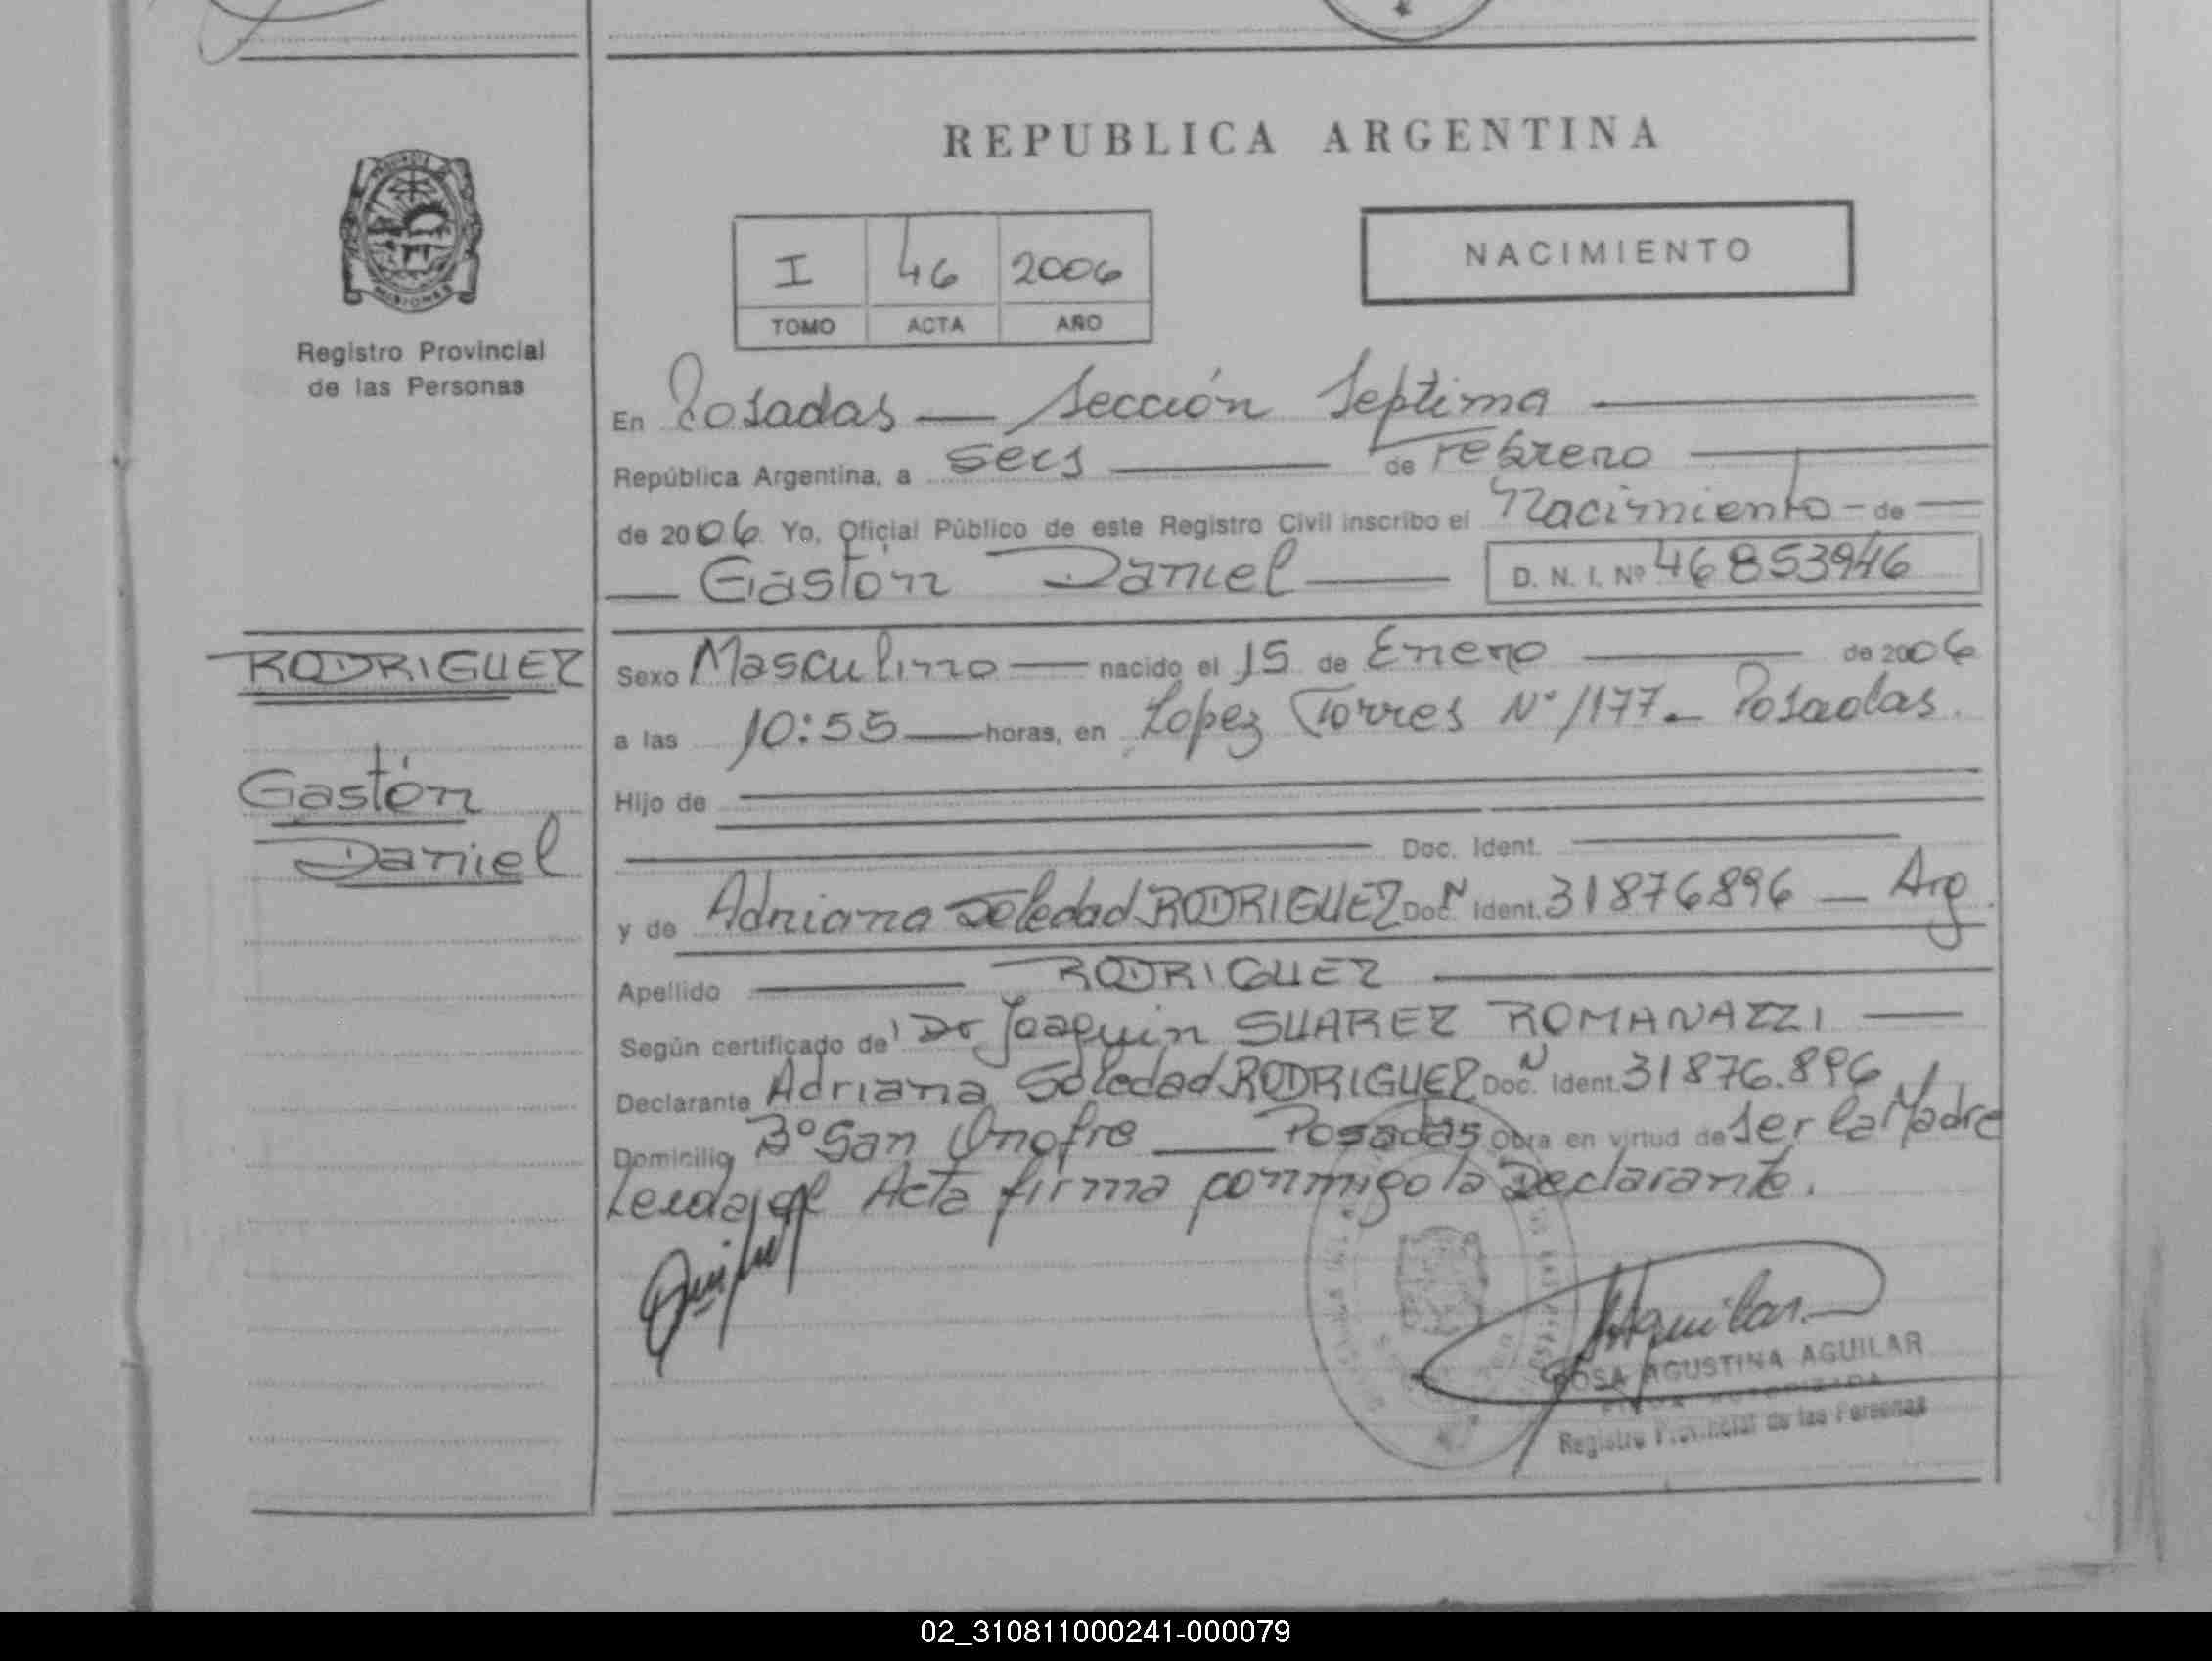 REPUBLICA ARGENTINA
NACIMIENTO
I 46 2006
TOMO ACTA AÑO
MISIONES
Registro Provincial
de las Personas
En Posadas — Sección Septima
República Argentina, a seis de Febrero
de 2006 Yo, Oficial Público de este Registro Civil inscribo el Nacimiento - de
Gastón Daniel D. N. I. Nº 46853946
RODRIGUEZ
Gastón
Daniel
Sexo Masculino nacido el 15 de Enero de 2006
a las 10:55 horas, en Lopez Torres Nº 1177 - Posadas.
Hijo de
Doc. Ident.
y de Adriana Soledad RODRIGUEZ Doc. N Ident. 31876896 — Arg.
Apellido RODRIGUEZ
Según certificado de Dr Joaquin SUAREZ ROMANAZZI
Declarante Adriana Soledad RODRIGUEZ Doc. N Ident. 31876.896
Domicilio Bº San Onofre — Posadas Obra en virtud de ser la Madre
Leida el Acta firma conmigo la Declarante.
Aguilar
ROSA AGUSTINA AGUILAR
Registro Provincial de las Personas
02_310811000241-000079